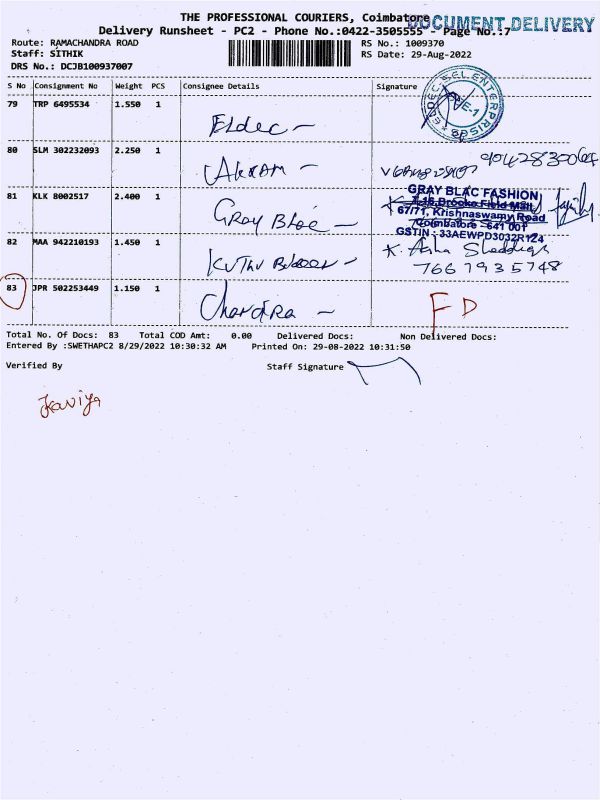 THE PROFESSIONAL COURIERS, Coimbatore
DOCUMENT DELIVERY
Delivery Runsheet - PC2 - Phone No.:0422-3505555 - Page No.:7
Route: RAMACHANDRA ROAD
RS No.: 1009370
Staff: SITHIK
RS Date: 29-Aug-2022
DRS No.: DCJB100937007
S No Consignment No Weight PCS Consignee Details Signature
79 TRP 6495534 1.550 1 Eldec -
80 SLM 302232093 2.250 1 Akram -
81 KLK 8002517 2.400 1 Gray Blac -
GRAY BLAC FASHION
67/71, Krishnaswamy Road
Coimbatore - 641 001
GSTIN : 33AEWPD3032R1Z4
82 MAA 942210193 1.450 1
K. Asha
7667935748
83 JPR 502253449 1.150 1 Chandra - FD
Total No. Of Docs: 83 Total COD Amt: 0.00 Delivered Docs: Non Delivered Docs:
Entered By :SWETHAPC2 8/29/2022 10:30:32 AM Printed On: 29-08-2022 10:31:50
Verified By Staff Signature
Kaviya